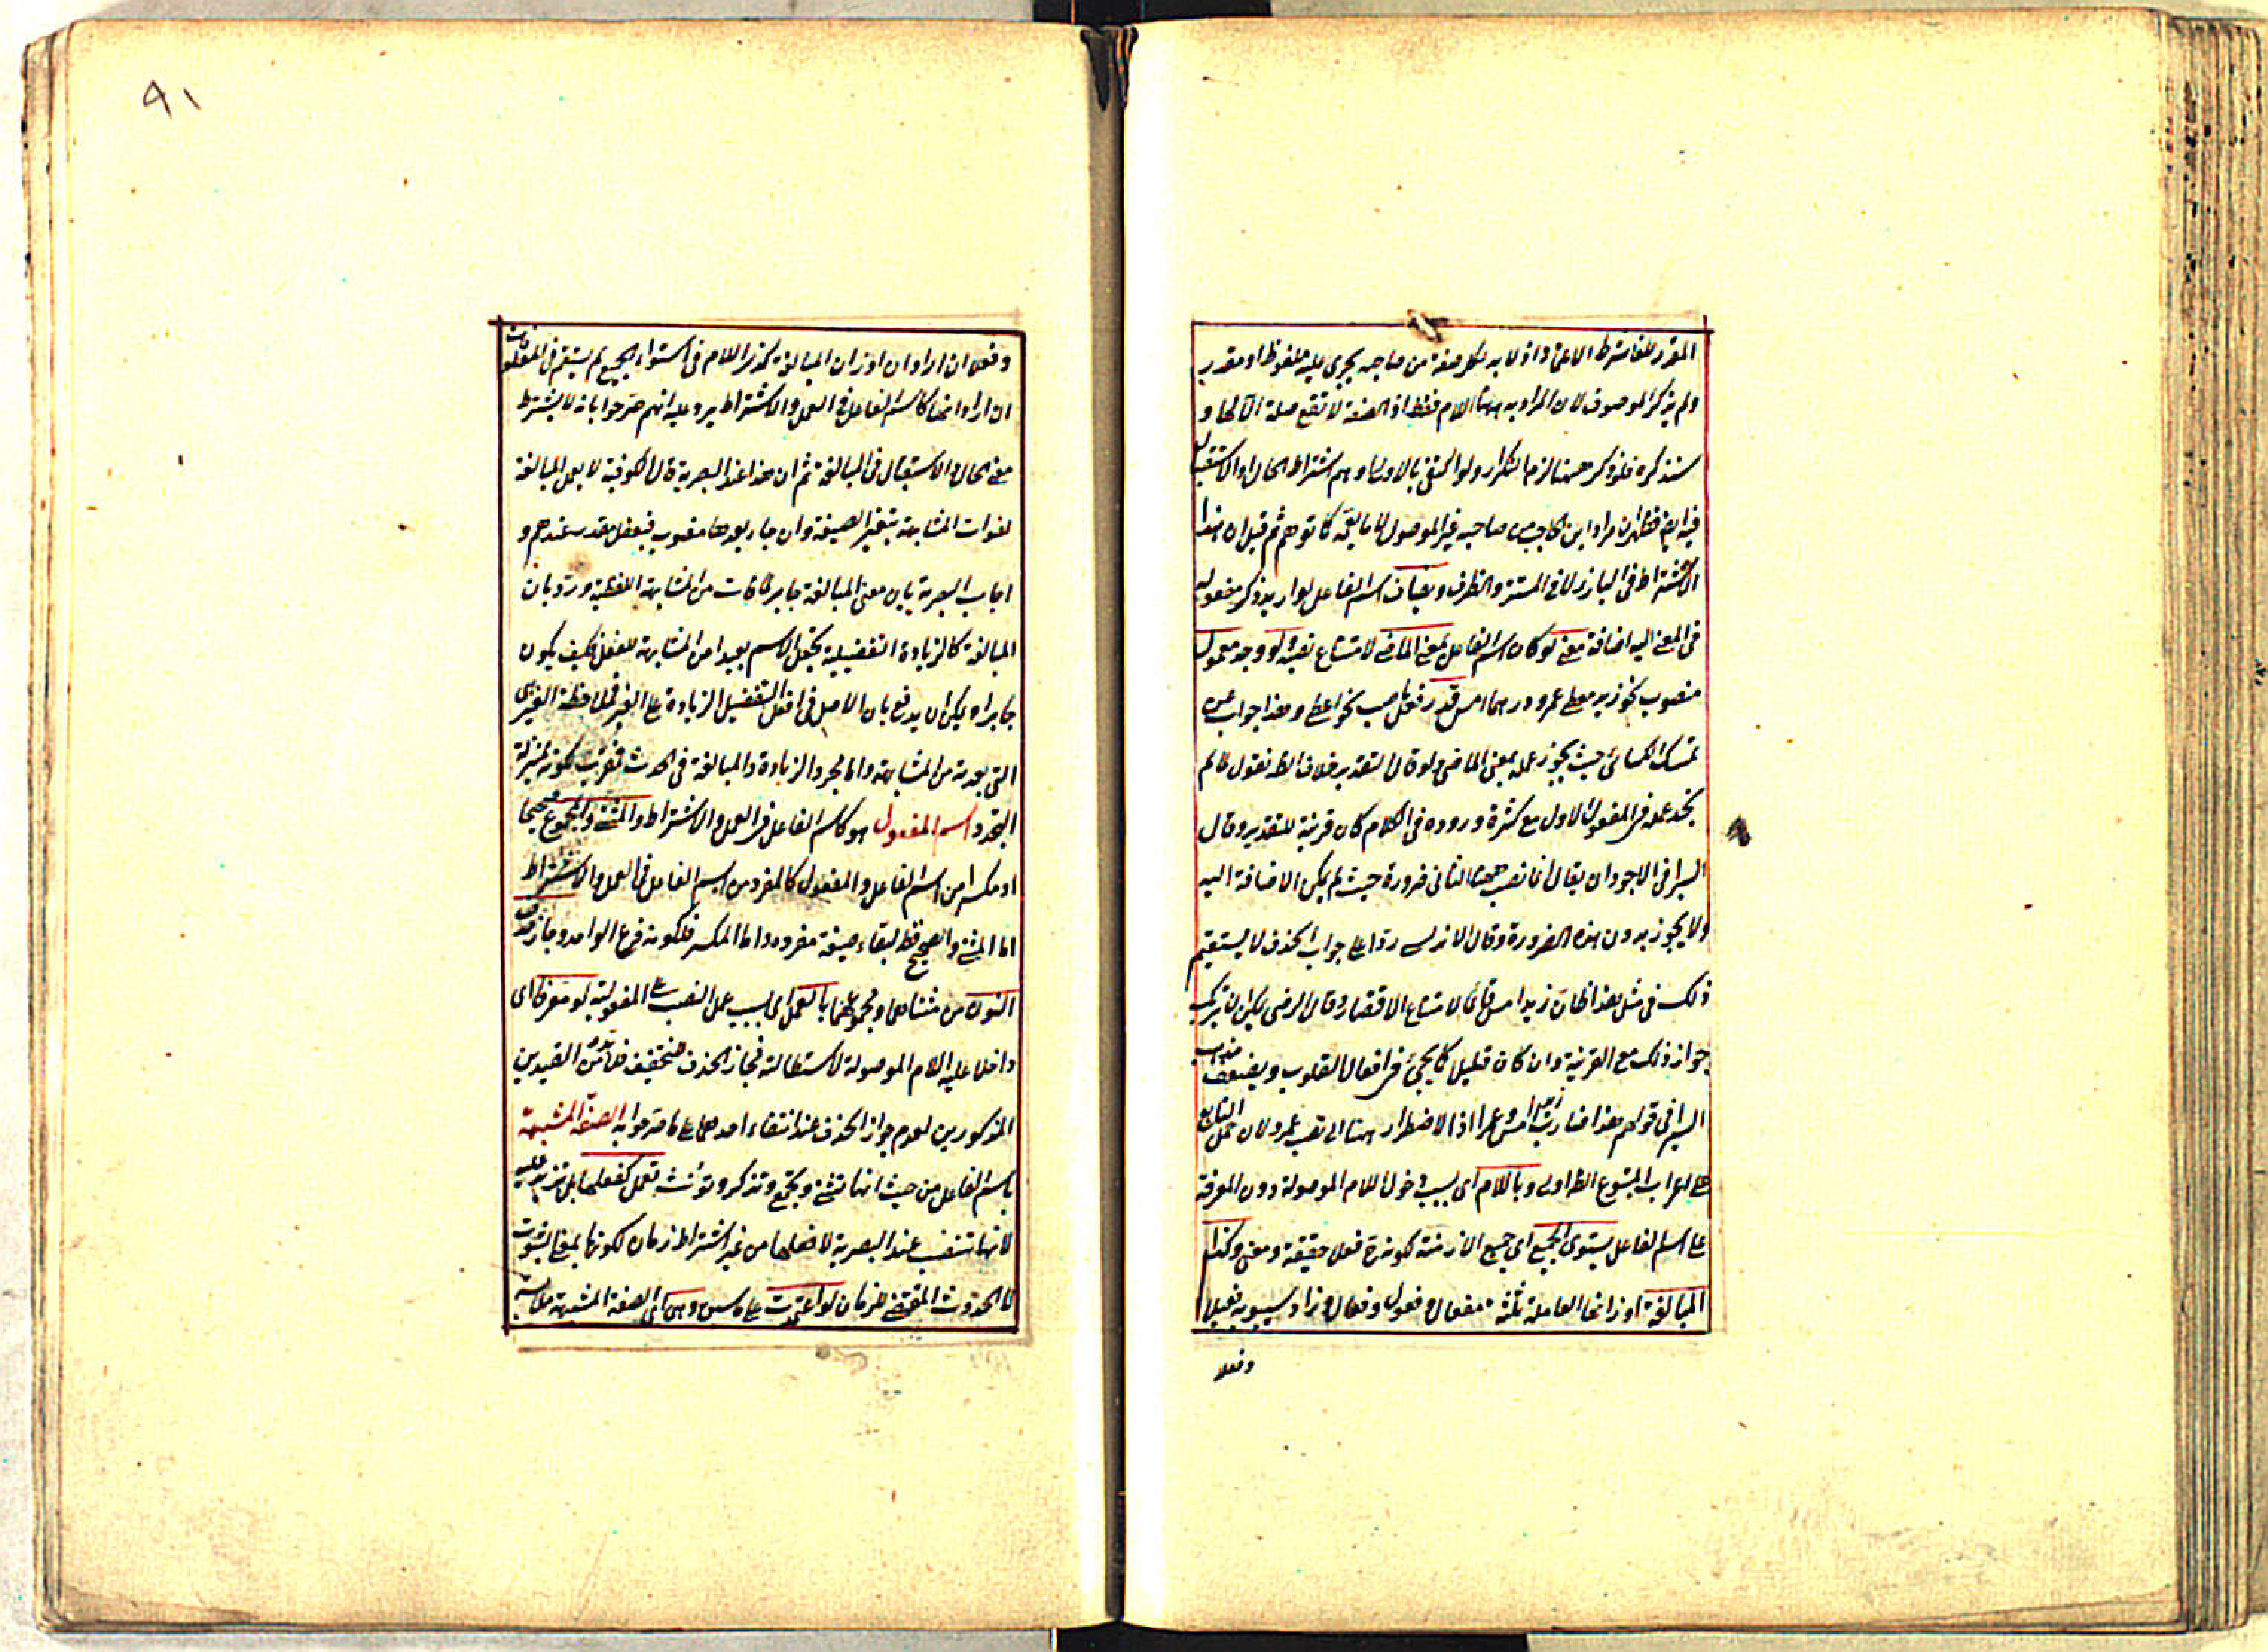 المقدر للغاشرط الاعتماد اذ لا بد لكل صفة من صاحب يجرى عليه ملفوظ او مقدر
ولم يذكر الموصوف لان المراد به ههنا اللام فقط اذ الصفة لا تقع صلة الا لها و
سنذكره فلو ذكر ههنا لزم التكرار ولو اكتفى بالاول اوهم اشتراط الحال او الاستقبال
فيه ايضا فظهر ان مراد ابن الحاجب من صاحبه غير الموصول لا ما يعمه كما توهم ثم قيل ان هذا
الاشتراط فى البارز لا فى المستتر والظرف ويضاف اسم الفاعل لو اريد ذكر مفعوله
فى المعنى اليه اضافة معنى لو كان اسم الفاعل بمعنى الماضى لامتناع نصبه ولو وجد معمول
منصوب نحو زيد معطى عمرو درهما امس قدر فعل ناصب نحو اعطى وهذا جواب عن
تمسك الكسائى حيث يجوز عمله بمعنى الماضى ولو قال التقدير خلاف الظ نقول لما لم
نجد عمله فى المفعول الاول مع كثرة وروده فى الكلام كان قرينة للتقدير وقال
السيرافى الاجود ان يقال انما نصب ههنا الثانى ضرورة حيث لم يمكن الاضافة اليه
ولا يجوز بدون هذه الضرورة وقال الاندلسى ردا على جواب الحذف لا يستقيم
ذلك فى مثل هذا ظان زيد امس قائما لامتناع الاقتصار وقال الرضى يمكن ان يرتكب
جواز ذلك مع القرينة وان كان قليلا كما يجئ فى افعال القلوب ويضعف مذهب
السيرافى قولهم هذا ضارب زيد امس وعمرا اذ لا اضطرار ههنا الى نصب عمرو لان حمل التابع
على اعراب المتبوع الظ اولى وباللام اى بسبب دخول اللام الموصولة دون المعرفة
على اسم الفاعل يستوى الجميع اى جميع الازمنة لكونه ح فعلا حقيقة ومعنى وكذا
المبالغة اوزانها العاملة ثلثة مفعال وفعول وفعال وزاد سيبويه فعيلا
وفعلا
٩١
وفعلا ان اراد ان اوزان المبالغة كذى اللام فى استواء الجميع لم يستقم فى المقلوبات
ان اراد انها كاسم الفاعل فى العمل والاشتراط يرد عليه انهم صرحوا بانه لا يشترط
معنى الحال والاستقبال فى المبالغة ثم ان هذا عند البصرية قال الكوفية لا يعمل المبالغة
لفوات المشابهة بتغير الصيغة وان جاء بعدها منصوب فبفعل مقدر عندهم و
اجاب البصرية بان معنى المبالغة جابر لما فات من المشابهة اللفظية ورد بان
المبالغة كالزيادة التفضيلية يجعل الاسم بعيدا من المشابهة للفعل فكيف يكون
جابرا ويمكن ان يدفع بان الاصل فى افعل التفضيل الزيادة على الغير فملاحظة الغير هى
التى بعدته من المشابهة واما مجرد الزيادة والمبالغة فى الحدث فتقرب لكونه بمنزلة
التجدد اسم المفعول هو كاسم الفاعل فى العمل والاشتراط والمثنى والمجموع صحيحا
او مكسرا من اسم الفاعل والمفعول كالمفرد من اسم الفاعل فى العمل والاشتراط
اما المثنى والصحيح فظ لبقاء صيغة مفرده واما المكسر فلكونه فرع الواحد وجاز حذف
النون من مثناهما ومجموعهما بالعمل اى بسبب عمل النصب على المفعولية لو معرفا اى
داخلا عليه اللام الموصولة لاستطالته فجاز الحذف للتخفيف فلا بد من القيدين
المذكورين لعدم جواز الحذف عند انتفاء احدهما على ما صرحوا به الصفة المشبهة
باسم الفاعل من حيث انها تثنى وتجمع وتذكر وتؤنث تعمل كفعلها بل تزيد عليه
لانها تنصب عند البصرية لا فعلها من غير اشتراط زمان لكونها بمعنى الثبوت
لا الحدوث المقتضى للزمان لو اعتمدت على ما سبق وهى اى الصفة المشبهة ملابسة